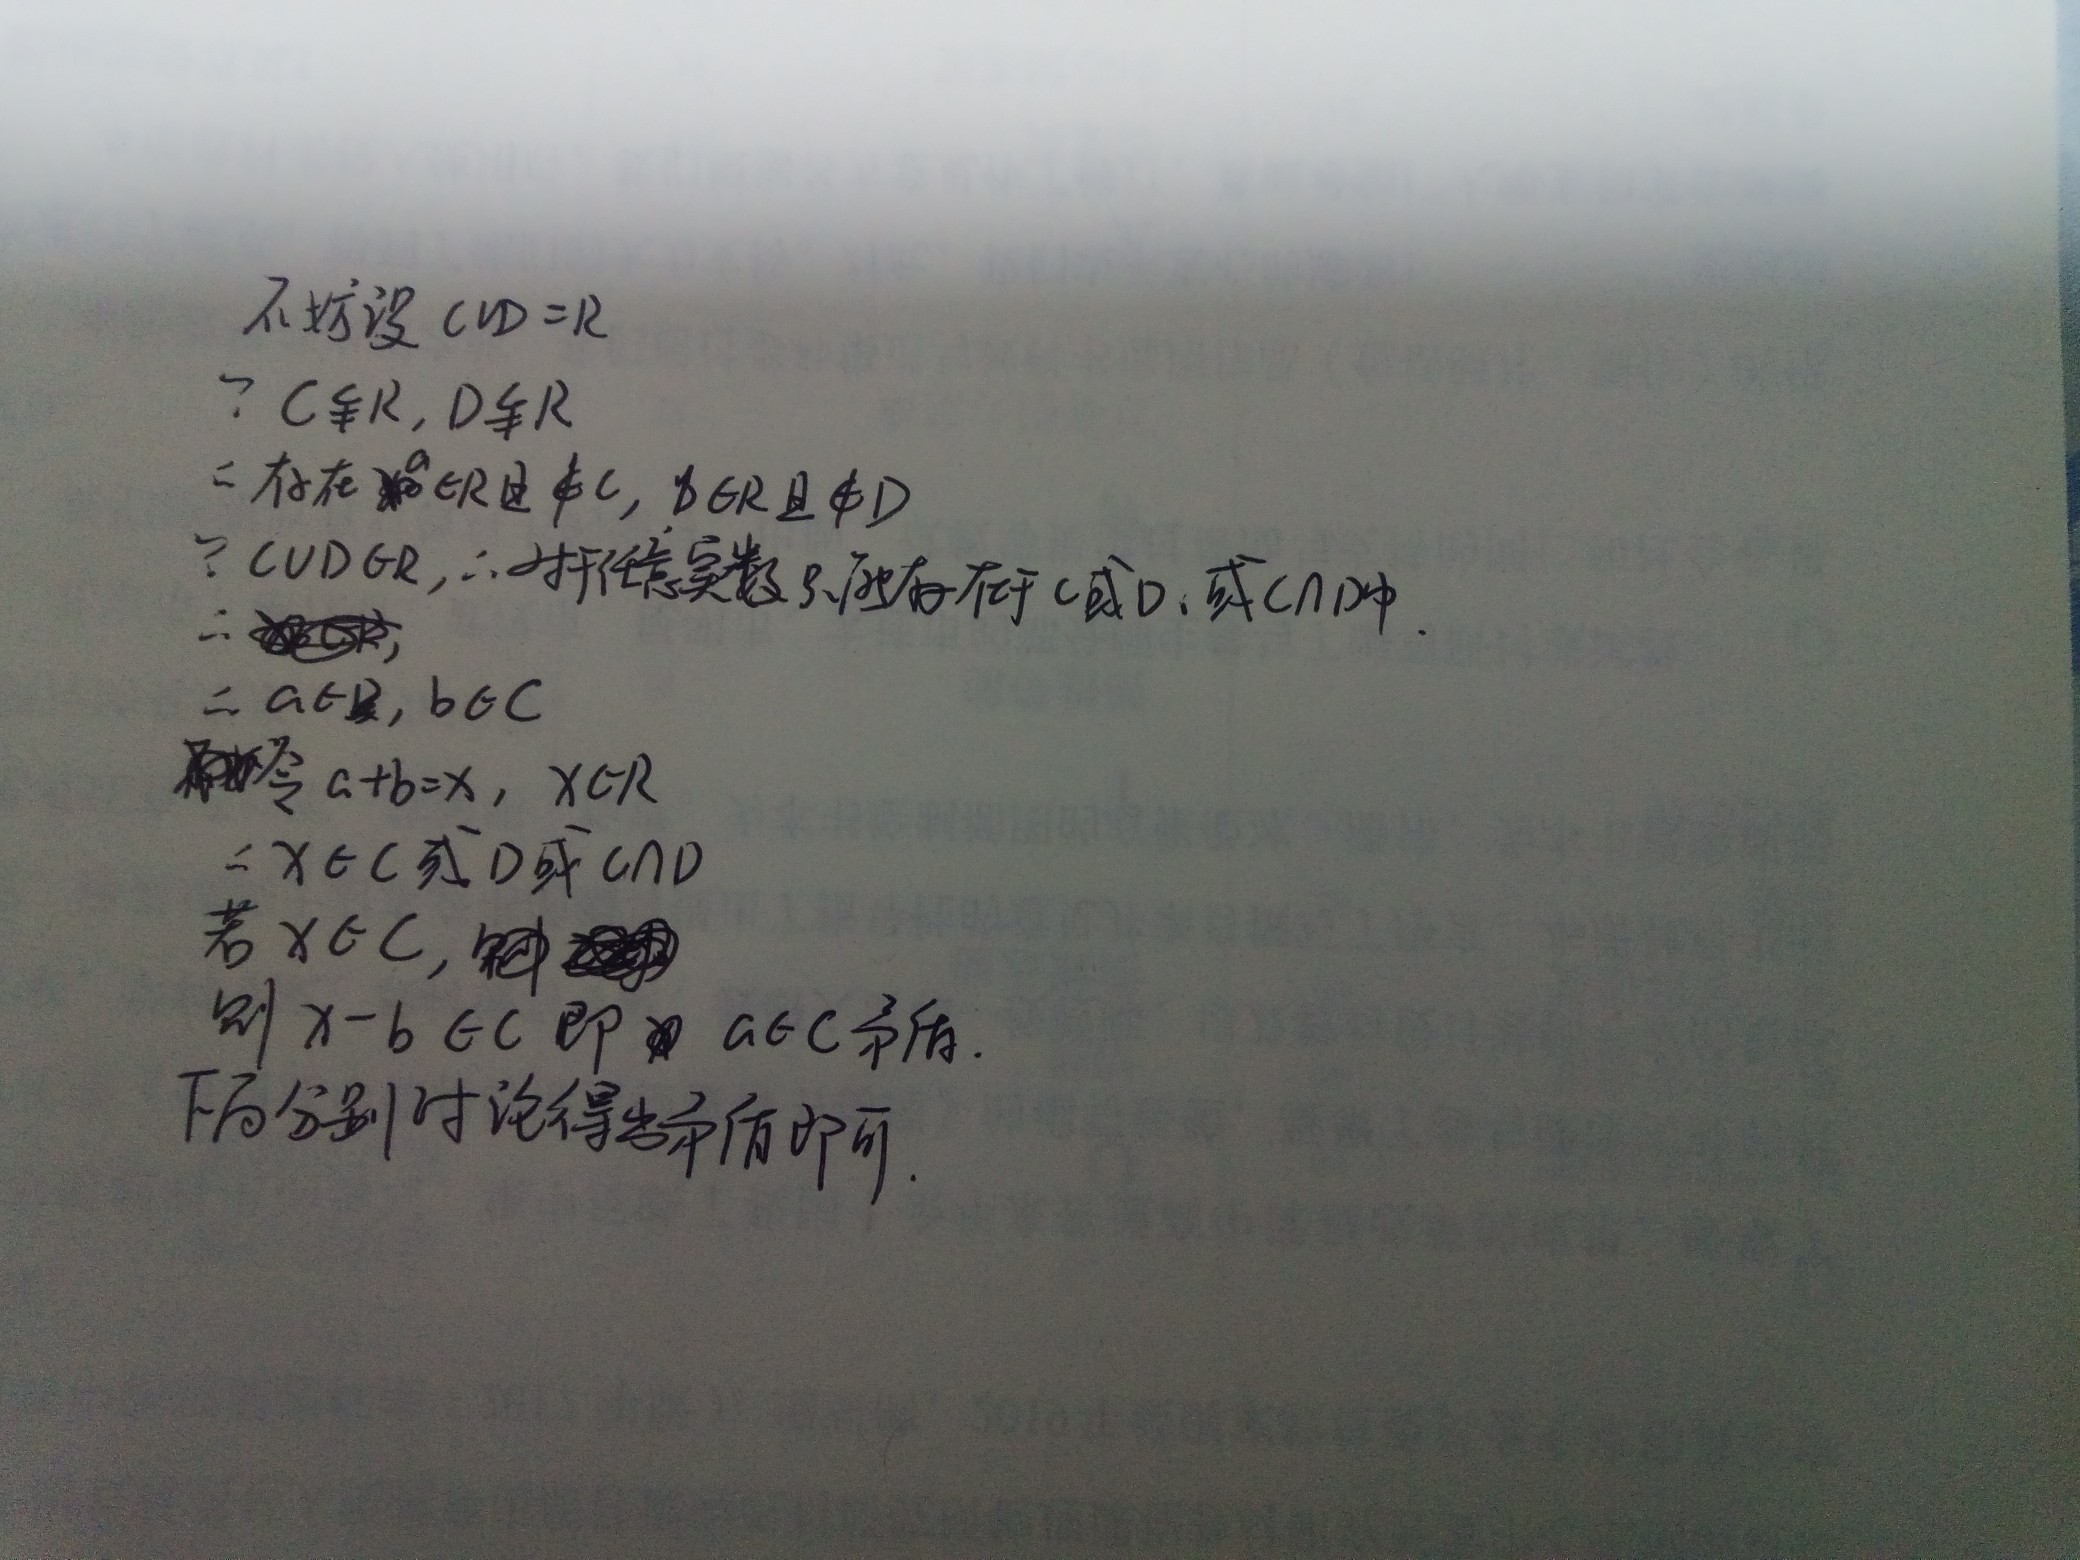 不妨设 C∪D=R
∵ C⫋R, D⫋R
∴ 存在 a∈R且∉C, b∈R且∉D
∵ C∪D∈R, ∴对于任意实数只能存在于C或D、或C∩D中.
∴
∴ a∈, b∈C
令 a+b=x, x∈R
∴ x∈C或D或C∩D
若 x∈C,
则 x-b∈C 即 a∈C 矛盾.
下面分别讨论得出矛盾即可.